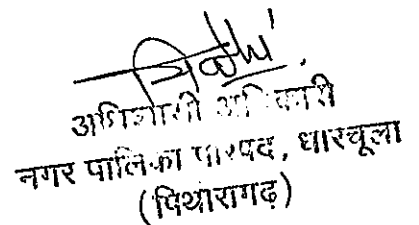 अधिशासी अधिकारी
नगर पालिका परिषद, धारचूला
(पिथौरागढ़)